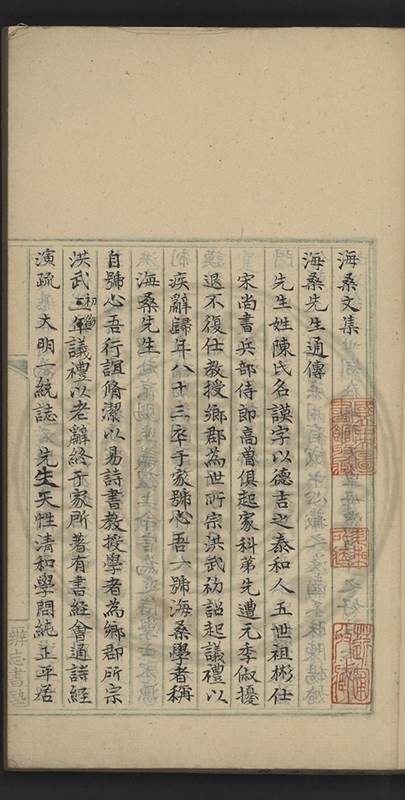 海桑文集
海桑先生通傳
先生姓陳氏名謨字以德吉之泰和人五世祖彬仕
宋尚書兵部侍郎高僧俱起家科第先遭元季俶擾
退不復仕教授鄉郡為世所宗洪武初詔起議禮以
疾辭歸年八十三卒于家號心吾一號海桑學者稱
海桑先生
自號心吾行誼脩潔以易詩書教授學者為鄉郡所宗
洪武初年議禮以老辭終于家所著有書經會通詩經
演疏 大明一統誌 先生天性清和學問純正平居
辨志書塾